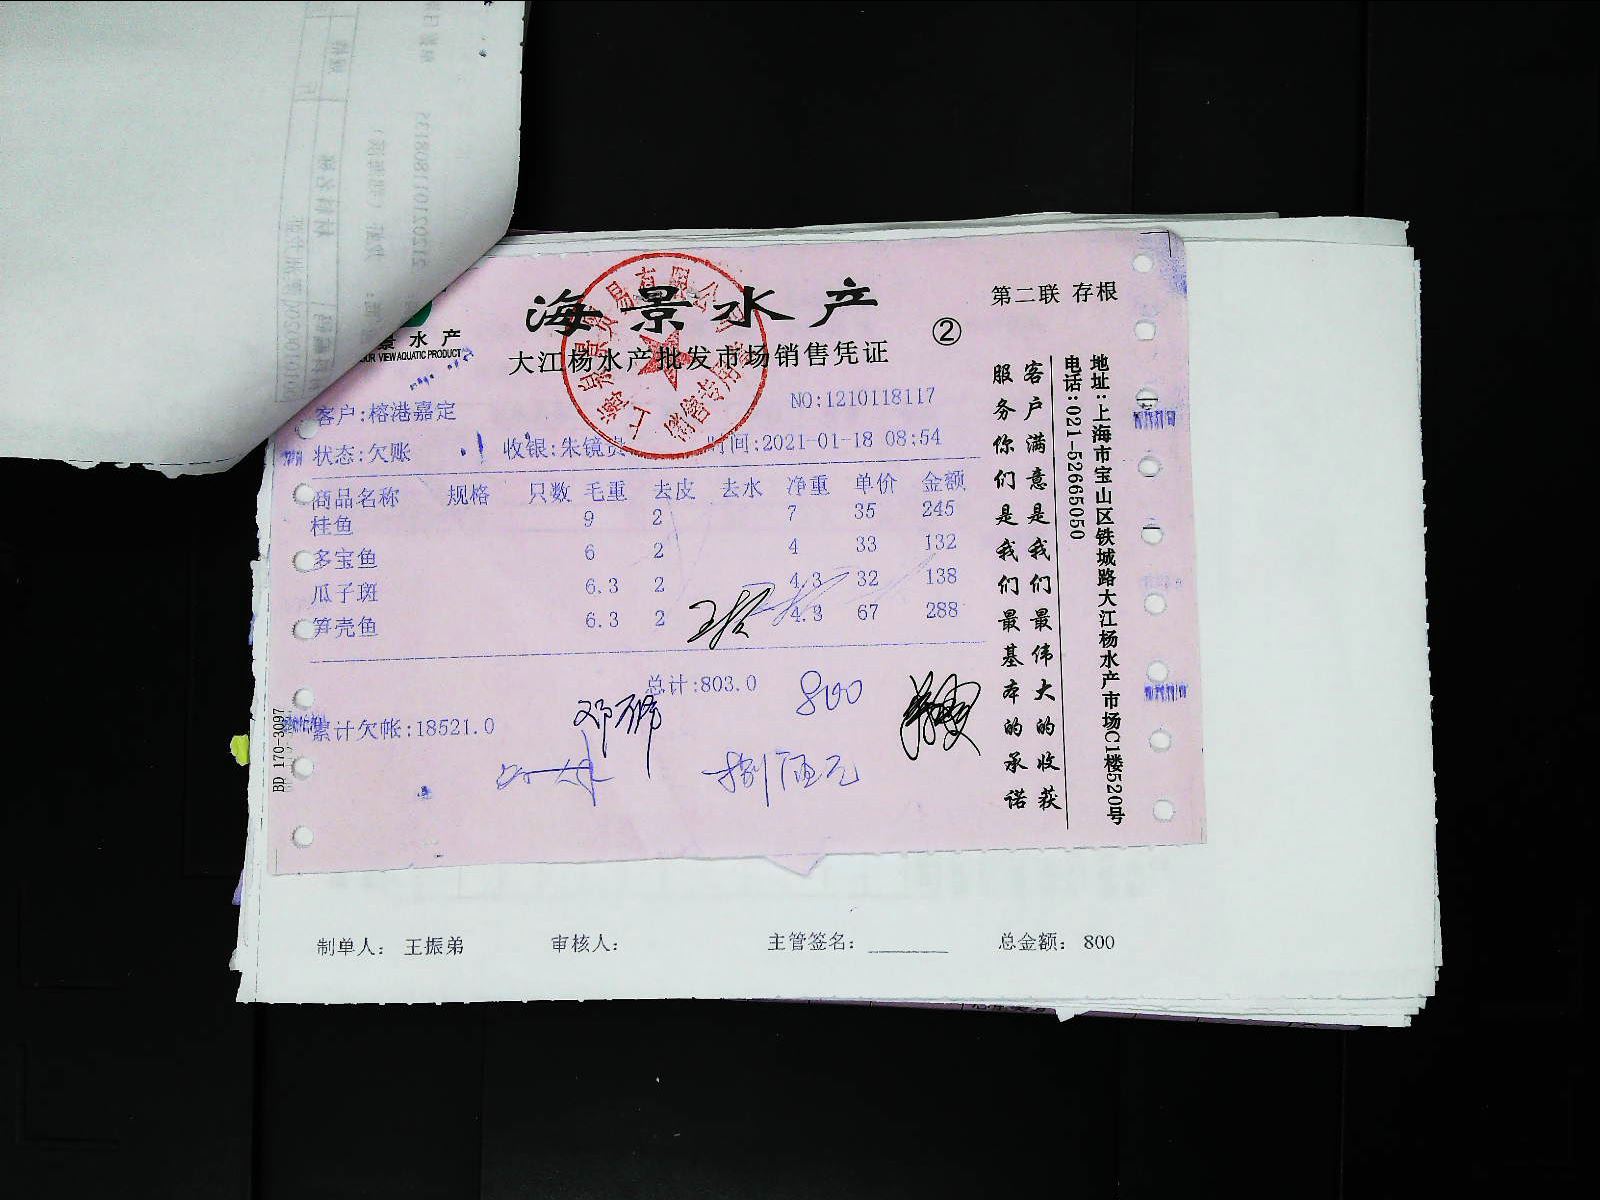 海景水产
②
第二联 存根
景水产
OUR VIEW AQUATIC PRODUCT
大江杨水产批发市场销售凭证
上海景贸易有限公司
销售专用
客户:榕港嘉定
NO:1210118117
状态:欠账
收银:朱镜贵
时间:2021-01-18 08:54
商品名称 规格 只数 毛重 去皮 去水 净重 单价 金额
桂鱼 9 2 7 35 245
多宝鱼 6 2 4 33 132
瓜子斑 6.3 2 4.3 32 138
笋壳鱼 6.3 2 4.3 67 288
总计:803.0
800
累计欠帐:18521.0
捌佰元
BD 170-3097
客户满意是我们最伟大的收获
服务你们是我们最基本的承诺
地址:上海市宝山区铁城路大江杨水产市场C1楼520号
电话:021-52665050
制单人: 王振弟
审核人:
主管签名:
总金额: 800